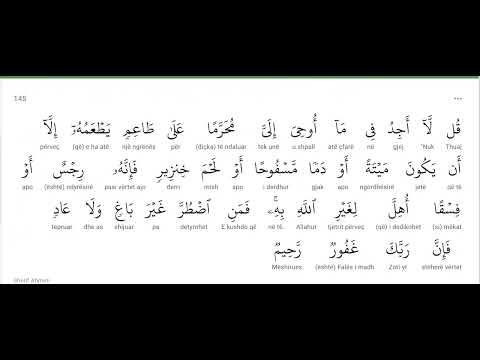 145
قُل لَّآ أَجِدُ فِى مَآ أُوحِىَ إِلَىَّ مُحَرَّمًا عَلَىٰ طَاعِمٍ يَطْعَمُهُۥٓ إِلَّآ
Thuaj "Nuk gjej në atë çfarë u shpall tek unë (diçka) të ndaluar për një ngrënës (që) e ha atë përveç
أَن يَكُونَ مَيْتَةً أَوْ دَمًا مَّسْفُوحًا أَوْ لَحْمَ خِنزِيرٍ فَإِنَّهُۥ رِجْسٌ أَوْ
që të jetë ngordhësirë apo gjak i derdhur apo mish derri pse vërtet ajo (është) ndyrësirë apo
فِسْقًا أُهِلَّ لِغَيْرِ ٱللَّهِ بِهِۦ ۚ فَمَنِ ٱضْطُرَّ غَيْرَ بَاغٍ وَلَا عَادٍ
(si) mëkat (që) i dedikohet tjetrit përveç Allahut në të. E kushdo që detyrohet pa shijuar dhe as tepruar
فَإِنَّ رَبَّكَ غَفُورٌ رَّحِيمٌ
atëherë vërtet Zoti yt (është) Falës i madh Mëshirues.
Sherif Ahmeti